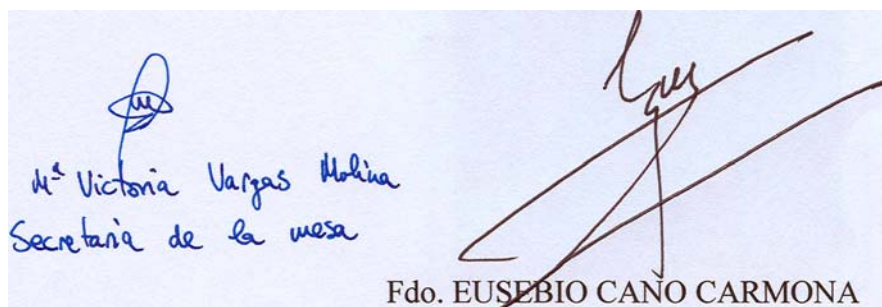 Mª Victoria Vargas Molina
Secretaria de la mesa
Fdo. EUSEBIO CANO CARMONA